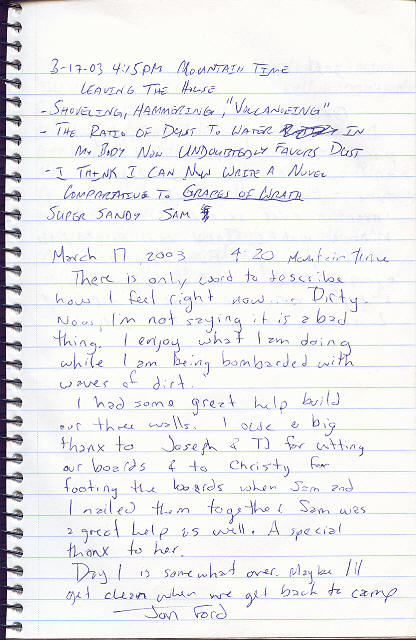 3-17-03 4:15PM MOUNTAIN TIME
LEAVING THE HOUSE
- SHOVELING, HAMMERING, "VOLCANOEING"
- THE RATIO OF DUST TO WATER IN
MY BODY NOW UNDOUBTEDLY FAVORS DUST
- I THINK I CAN NOW WRITE A NOVEL
COMPARITIVE TO GRAPES OF WRATH
SUPER SANDY SAM
March 17, 2003 4:20 Mountain Time
There is only word to describe
how I feel right now.... Dirty.
Now, I'm not saying it is a bad
thing. I enjoy what I am doing
while I am being bombarded with
waves of dirt.
I had some great help build
our three walls. I owe a big
thanx to Joseph & TJ for cutting
our boards & to Christy for
footing the boards when Sam and
I nailed them together. Sam was
a great help as well. A special
thanx to her.
Day 1 is somewhat over. Maybe I'll
get clean when we get back to camp
Jon Ford